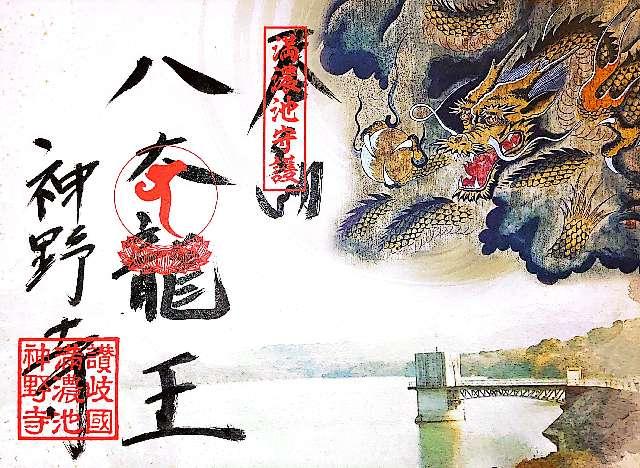 天山
満濃池守護
八大龍王
神野寺
讃岐國
満濃池
神野寺